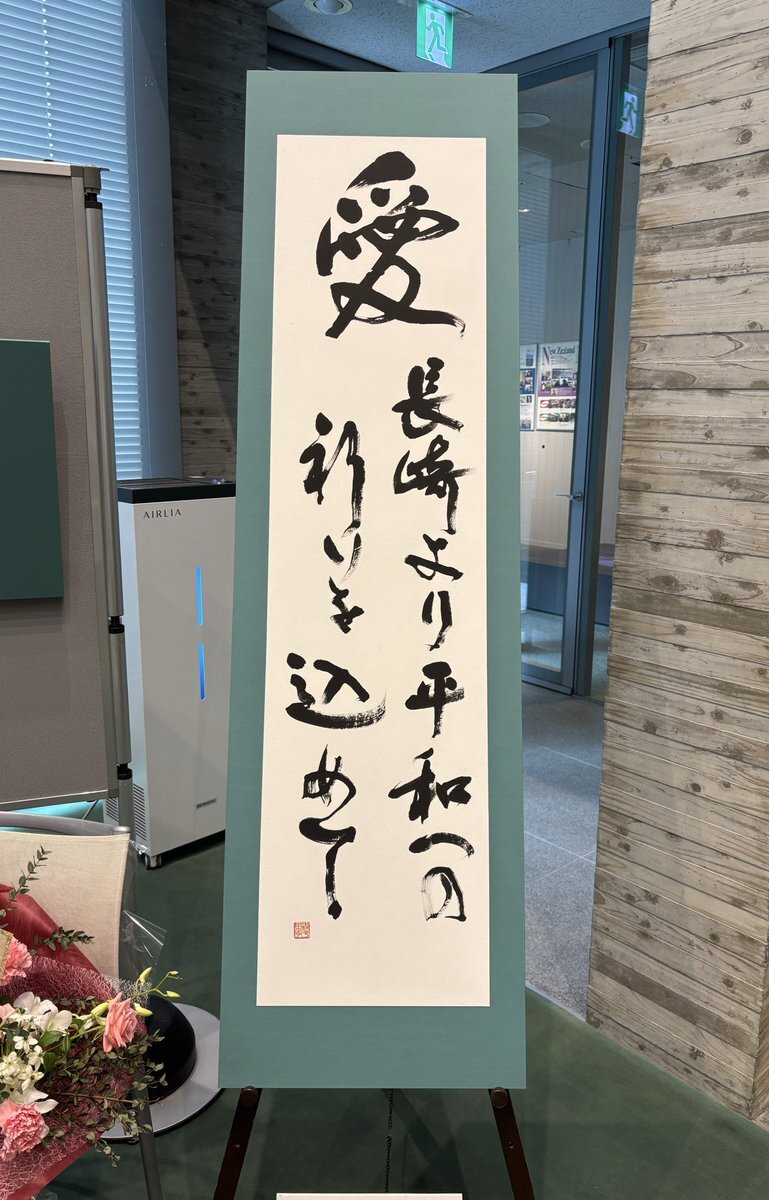 愛
長崎より平和への
祈りを込めて
AIRLIA
New Zealand